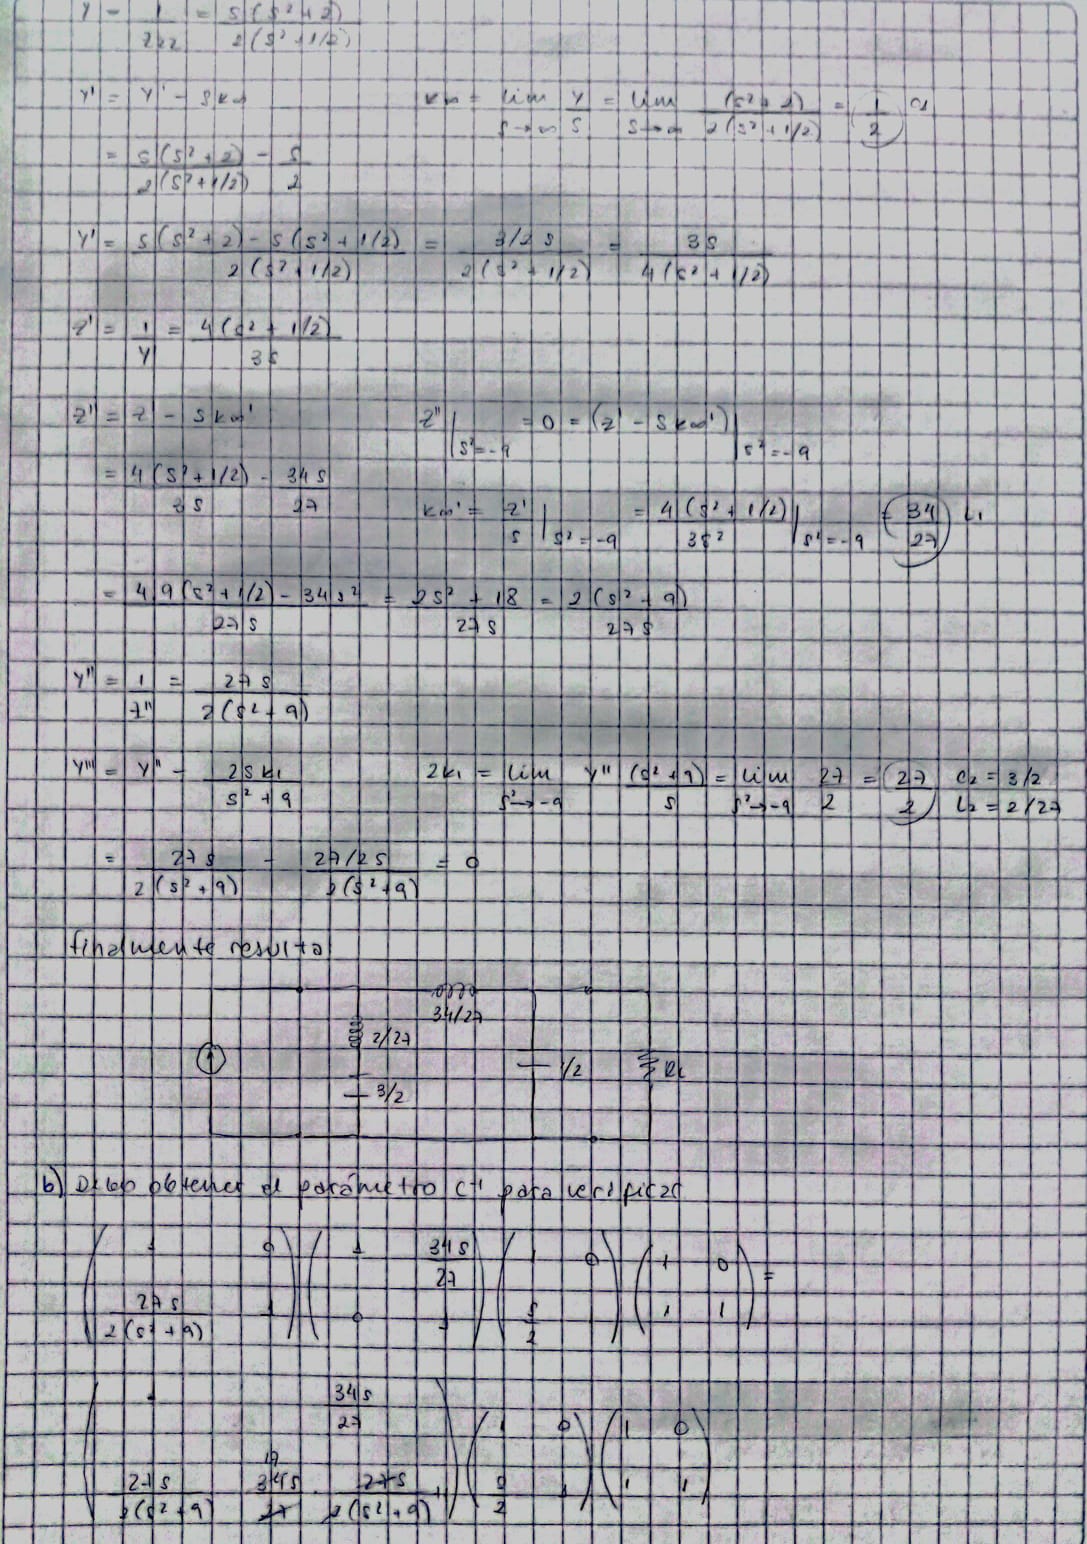 Y = 1/Z22 = s(s²+2) / 2(s²+1/2)
Y' = Y - sk∞    k∞ = lim s→∞ Y/s = lim s→∞ (s²+2) / 2(s²+1/2) = 1/2 C1
= s(s²+2) / 2(s²+1/2) - s/2
Y' = s(s²+2) - s(s²+1/2) / 2(s²+1/2) = 3/2 s / 2(s²+1/2) = 3s / 4(s²+1/2)
Z' = 1/Y' = 4(s²+1/2) / 3s
Z'' = Z' - sk∞'    Z''|s²=-9 = 0 = (Z' - sk∞')|s²=-9
= 4(s²+1/2) / 3s - 34s/27
k∞' = Z'/s |s²=-9 = 4(s²+1/2) / 3s² |s²=-9 = 34/27 L1
= 4 9(s²+1/2) - 34s² / 27s = 2s²+18 / 27s = 2(s²+9) / 27s
Y'' = 1/Z'' = 27s / 2(s²+9)
Y''' = Y'' - 2sk1 / s²+9    2k1 = lim s²→-9 Y'' (s²+9)/s = lim s²→-9 27/2 = 27/2    C2 = 3/2
L2 = 2/27
= 27s / 2(s²+9) - 27/2s / 2(s²+9) = 0
finalmente resulta
34/27
2/27
1/2
3/2
b) Debo obtener el parámetro c⁻¹ para verificar
( 1 0 ; 27s / 2(s²+9) 1 ) ( 1 34s/27 ; 0 1 ) ( 1 0 ; s/2 1 ) ( 1 0 ; 1 1 ) =
( 1 34s/27 ; 27s / 2(s²+9) 17 34s/27 · 27s / 2(s²+9) +1 ) ( 1 0 ; s/2 1 ) ( 1 0 ; 1 1 )